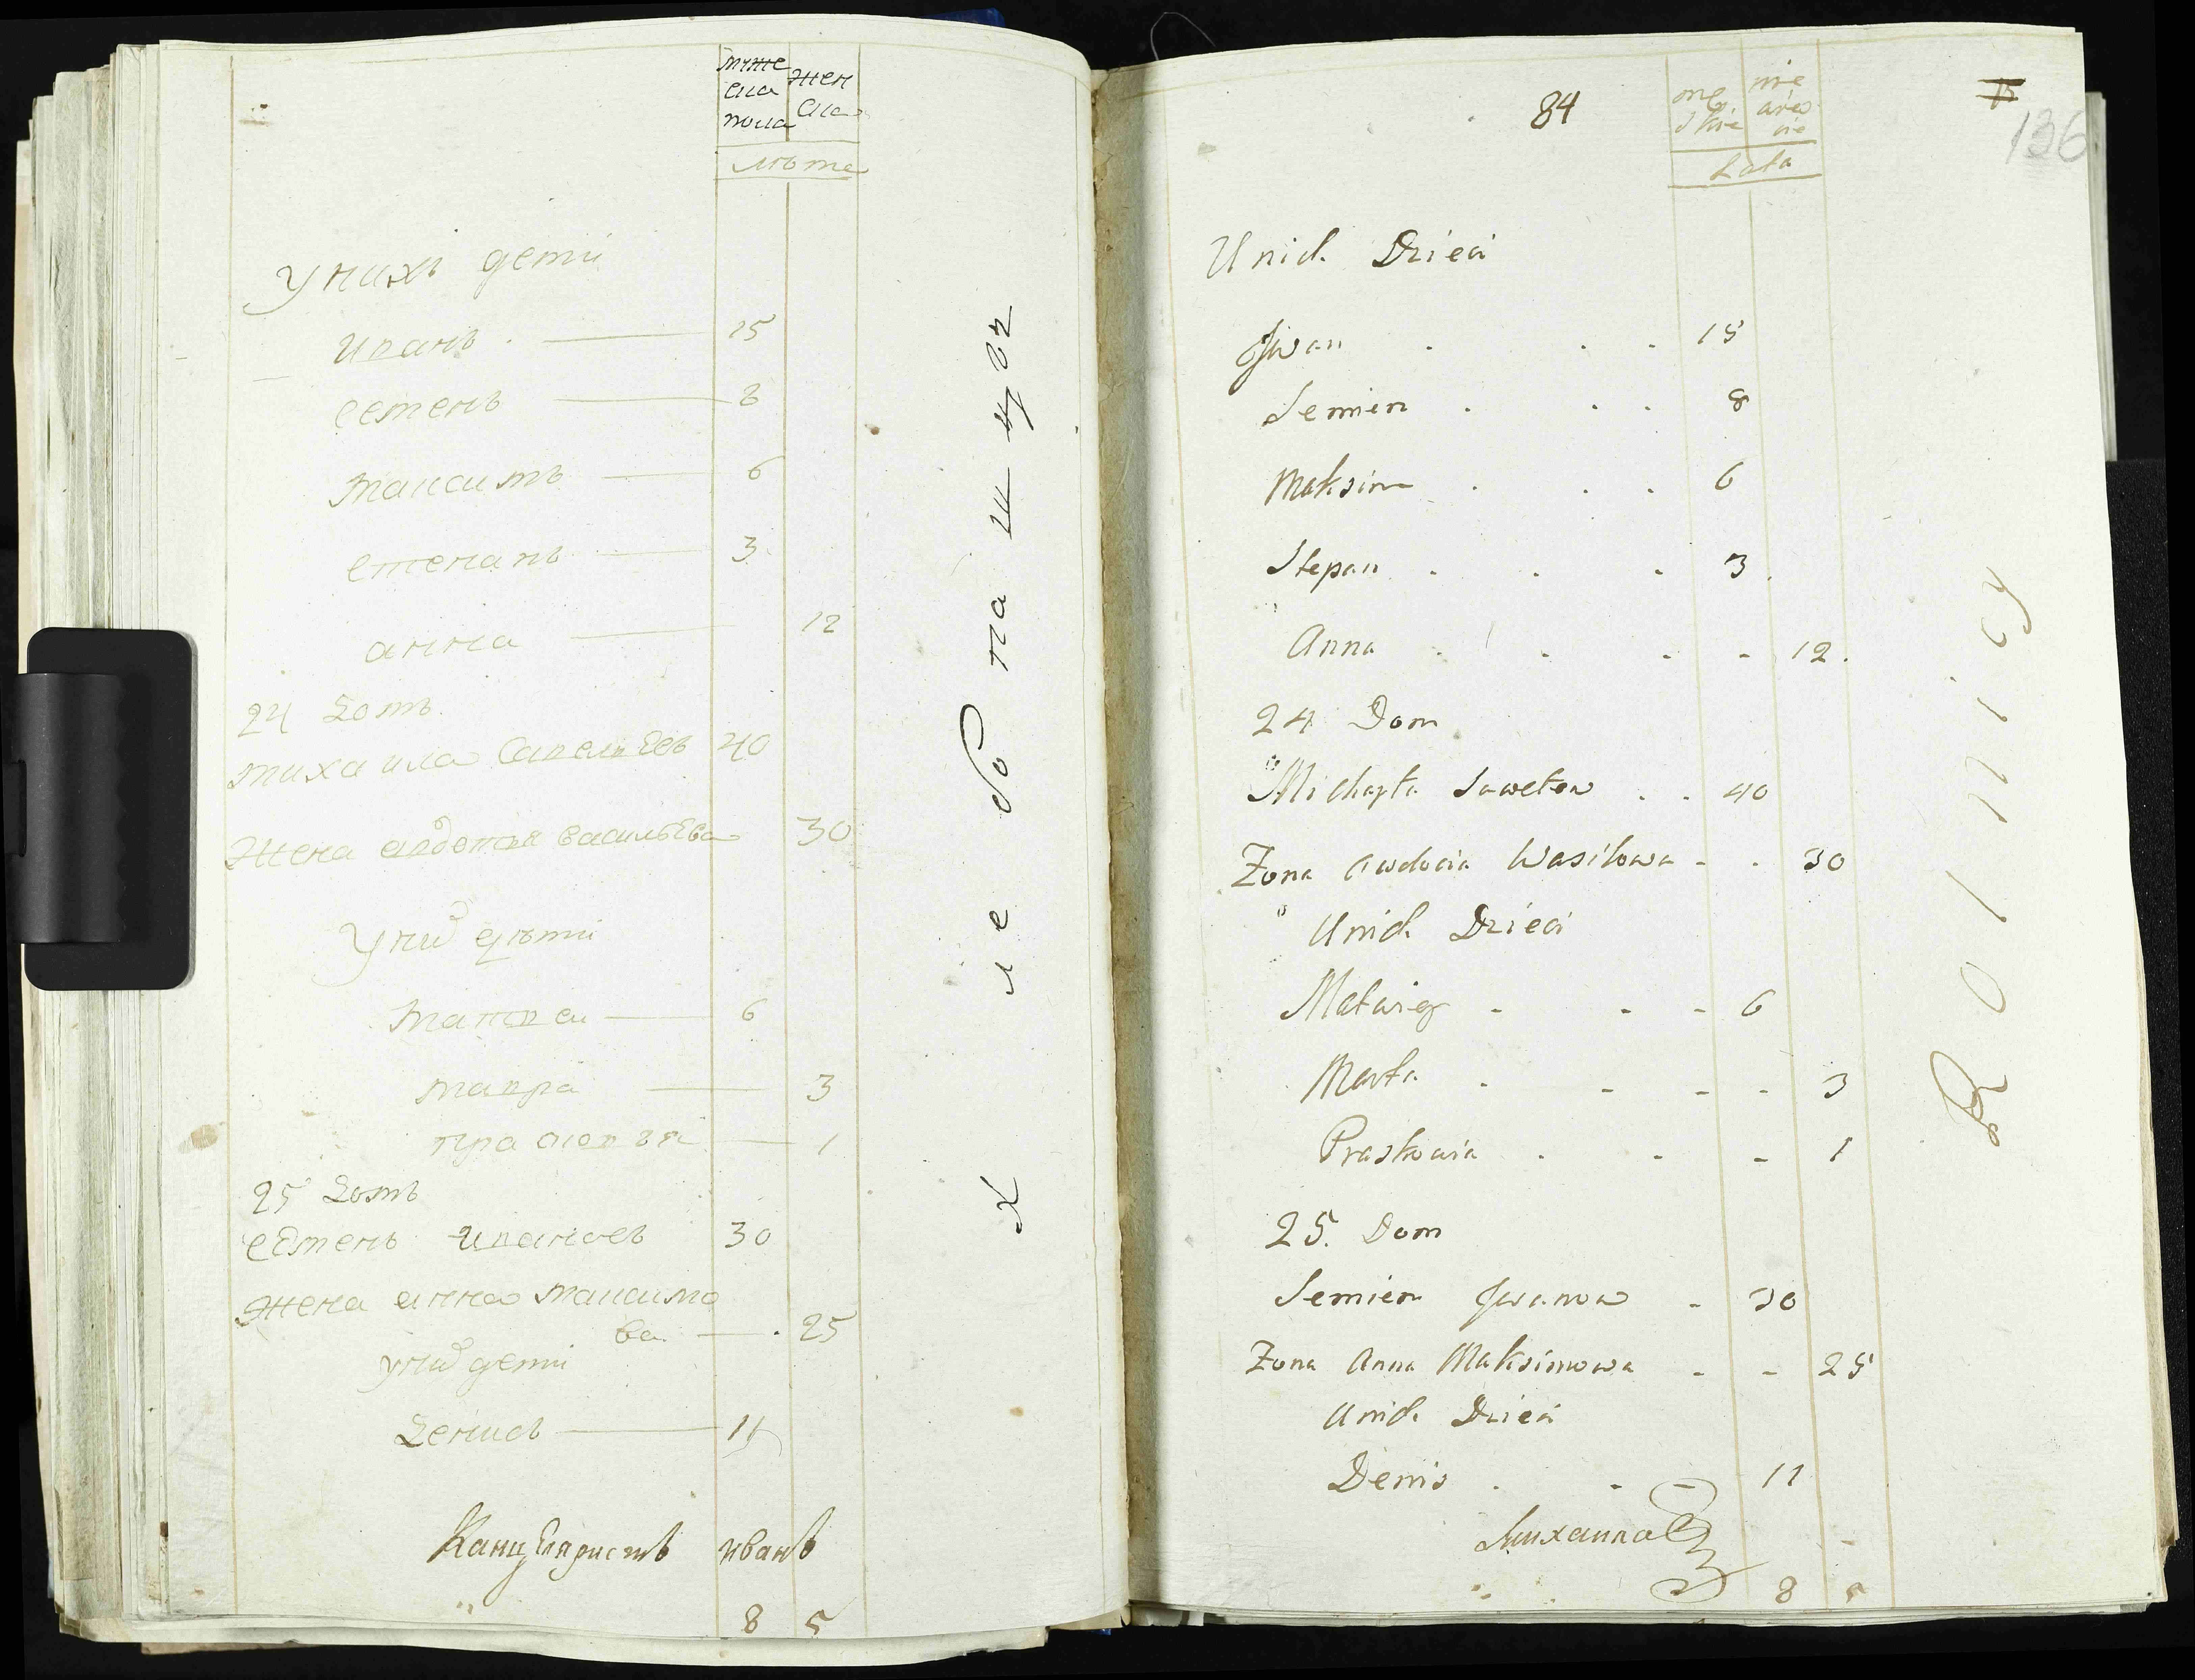 муже жен
ска ска
пола
лѣта
У нихъ дети
Иванъ . — 15
Семенъ — 8
Максимъ — 6
Степанъ — 3
Анна — 12
24 Домъ
Михаила Савельевъ 40
Жена Авдотья Васильева 30
У них дѣти
Матвеи — 6
Мавра — 3
Прасковья — 1
25 Домъ
Семенъ Ивановъ 30
Жена Анна Максимо
ва — . 25
У них дети
Денисъ — 11
Канцеляристъ Иванъ
8 5
Хлебопашцы
84
136
Lata
Unich Dzieci
Jwan . . . 15
Semien . . . 8
Maksim . . . 6
Stepan . . . 3
Anna . . . . 12.
24 Dom
Michayła Sawelew . . 40
Zona Awdocia Wasilowa - . 30
Unich Dzieci
Matwiey - - - 6
Marta - - - - 3
Praskowia . - - 1
25. Dom
Semien Jwanow - 30
Zona Anna Maksimowa - - 25
Unich Dzieci
Denis . . - 11
Михаила
8 5
Rolnicy